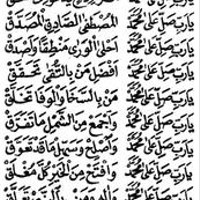 يارب صل على محمد المصطفى الصادق المصدق
يارب صل على محمد احلى الورى منطقا واصدق
يارب صل على محمد افضل من بالتقى تحقق
يارب صل على محمد من بالسخا والوفا تخلق
يارب صل على محمد واجمع من الشمل ما تفرق
يارب صل على محمد واصلح وسهل ما قد تعوق
يارب صل على محمد وافتح من الخير كل مغلق
يارب صل على محمد وآله ومن بالنبي تعلق